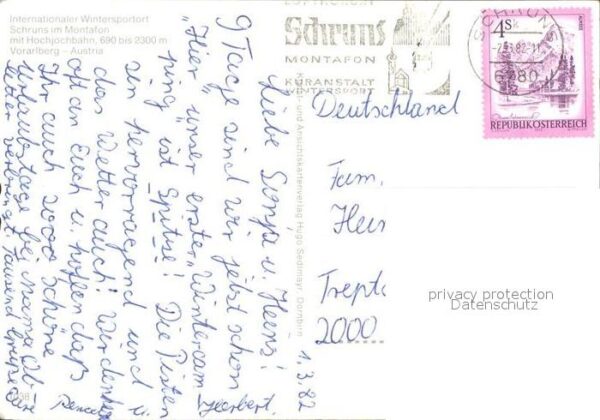 Internationaler Wintersportort
Schruns im Montafon
mit Hochjochbahn, 690 bis 2300 m
Vorarlberg - Austria
LUFTKURORT
Schruns
MONTAFON
KURANSTALT
WINTERSPORT
SCHRUNS
6780
4S
REPUBLIK ÖSTERREICH
Deutschland
Fam.
Hein
Trepto
2000
privacy protection
Datenschutz
Kunst- und Ansichtskartenverlag Hugo Sedlmayr, Dornbirn
1.3.82
Liebe Sonja u. Heinz!
9 Tage sind wir jetzt schon
"Hier", unser erster "Wintercam-
ping" ist Spitze! Die Pisten
sin hervorragend und
das Wetter auch! Wir denken
oft an Euch u. hoffen daß
Ihr auch sooo schöne
Urlaubstage bei
verbringt. Tausend Grüße
Eure Herbert.